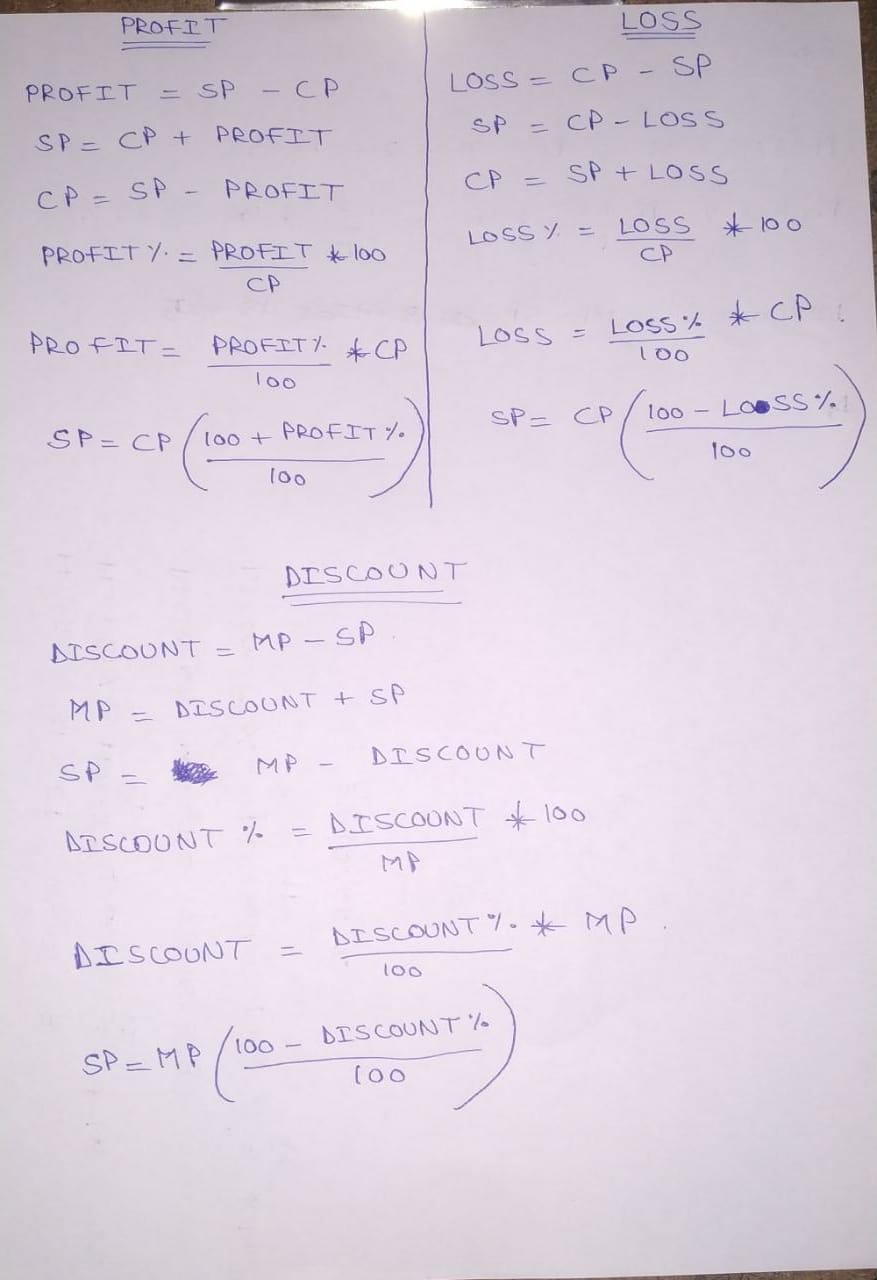 PROFIT
PROFIT = SP - CP
SP = CP + PROFIT
CP = SP - PROFIT
PROFIT % = PROFIT * 100
CP
PROFIT = PROFIT % * CP
100
SP = CP ( 100 + PROFIT % )
100
LOSS
LOSS = CP - SP
SP = CP - LOSS
CP = SP + LOSS
LOSS % = LOSS * 100
CP
LOSS = LOSS % * CP
100
SP = CP ( 100 - LOSS % )
100
DISCOUNT
DISCOUNT = MP - SP
MP = DISCOUNT + SP
SP = MP - DISCOUNT
DISCOUNT % = DISCOUNT * 100
MP
DISCOUNT = DISCOUNT % * MP
100
SP = MP ( 100 - DISCOUNT % )
100